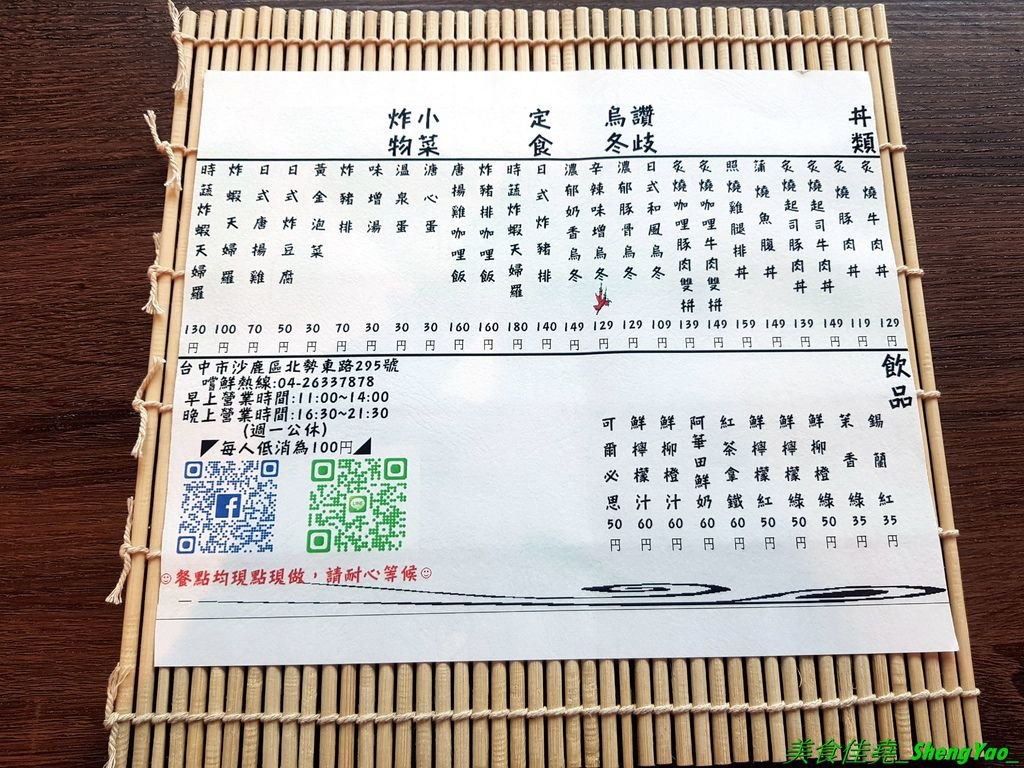 丼類
炙燒牛肉丼 129円
炙燒豚肉丼 119円
炙燒起司牛肉丼 149円
炙燒起司豚肉丼 139円
蒲燒魚腹丼 149円
照燒雞腿排丼 159円
炙燒咖哩牛肉雙拚 149円
炙燒咖哩豚肉雙拚 139円
讚歧烏冬
日式和風烏冬 109円
濃郁豚骨烏冬 129円
辛辣味增烏冬 129円
濃郁奶香烏冬 149円
定食
日式炸豬排 140円
時蔬炸蝦天婦羅 180円
炸豬排咖哩飯 160円
唐揚雞咖哩飯 160円
小菜炸物
溏心蛋 30円
溫泉蛋 30円
味增湯 30円
炸豬排 70円
黃金泡菜 30円
日式炸豆腐 50円
日式唐揚雞 70円
炸蝦天婦羅 100円
時蔬炸蝦天婦羅 130円
飲品
錫蘭紅 35円
茉香綠 35円
鮮柳橙綠 50円
鮮檸檬綠 50円
鮮檸檬紅 50円
紅茶拿鐵 60円
阿華田鮮奶 60円
鮮柳橙汁 60円
鮮檸檬汁 60円
可爾必思 50円
台中市沙鹿區北勢東路295號
嚐鮮熱線:04-26337878
早上營業時間:11:00~14:00
晚上營業時間:16:30~21:30
(週一公休)
每人低消為100円
餐點均現點現做，請耐心等候
美食佳堯_ShengYao_